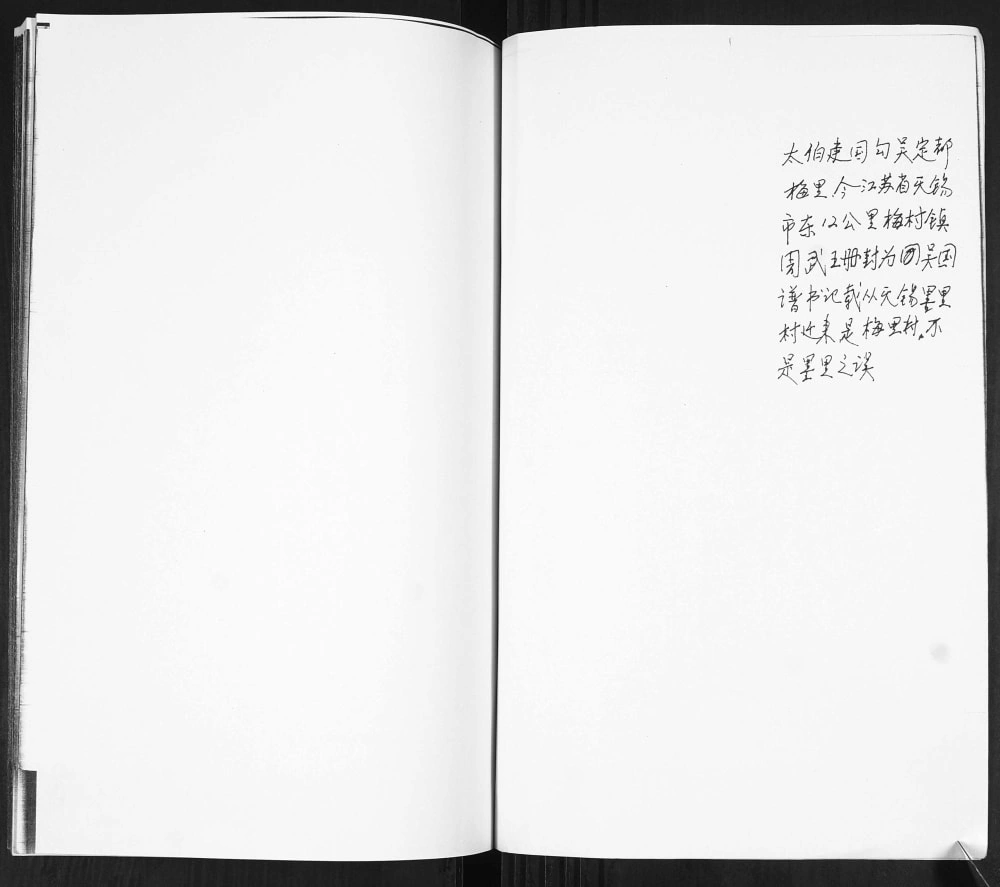 太伯建国勾吴定都
梅里.今江苏省无锡
市东12公里梅村镇
周武王册封为吴国
谱书记载从无锡墨里
村迁来是梅里村.不
是墨里之误